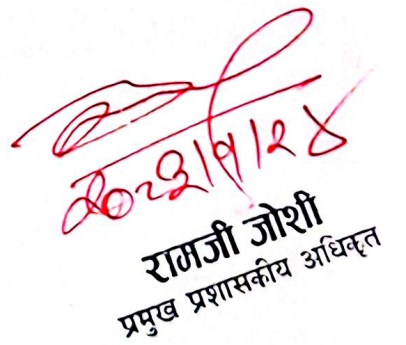 २०८३/१/२४
रामजी जोशी
प्रमुख प्रशासकीय अधिकृत